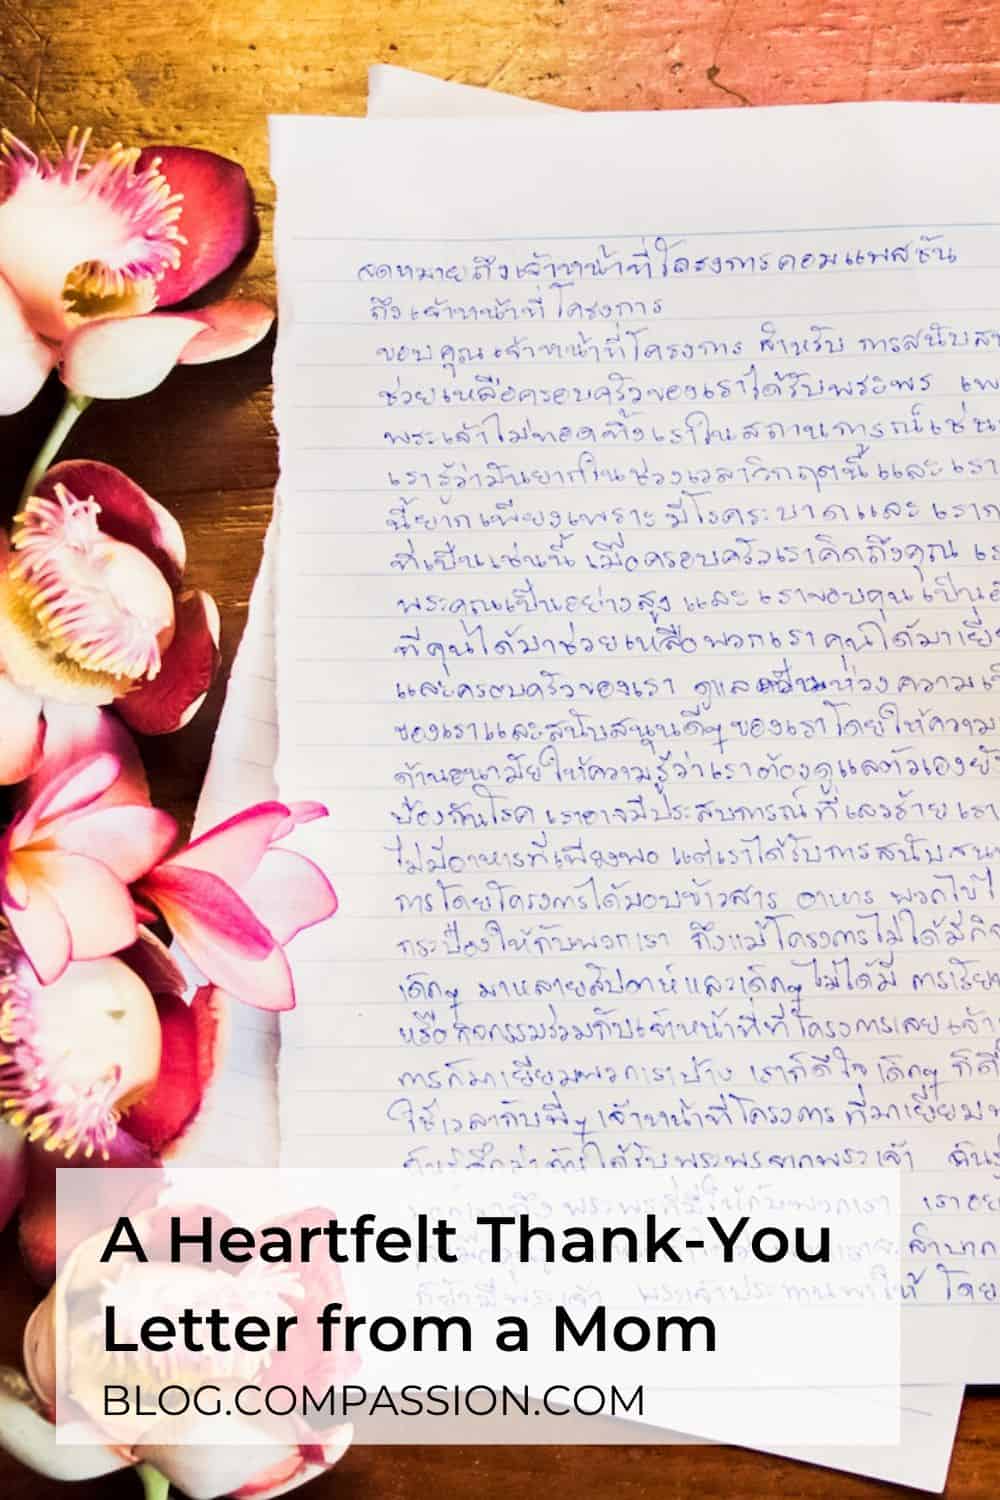 จดหมายถึงเจ้าหน้าที่โครงการคอมแพสชั่น
ถึงเจ้าหน้าที่โครงการ
ขอบคุณเจ้าหน้าที่โครงการ สำหรับ การสนับส
ช่วยเหลือครอบครัวของเราได้รับพระพร เพ
พระเจ้าไม่ทอดทิ้งเราในสถานการณ์เช่น
เรารู้ว่ามันยากในช่วงเวลาวิกฤตนี้และเรา
นี้ยากเพียงเพราะมีโรคระบาดและเรา
ที่เป็นเช่นนี้ เมื่อครอบครัวเราคิดถึงคุณ เร
พระคุณเป็นอย่างสูง และ เราขอบคุณเป็นอ
ที่คุณได้มาช่วยเหลือพวกเรา คุณได้มาเยี่
และครอบครัวของเรา ดูแล ห่วง ความเ
ของเราและสนับสนุนดีๆ ของเราโดยให้ความ
ด้านอนามัยให้ความรู้ว่าเราต้องดูแลตัวเองยั
ป้องกันโรค เราอาจมีประสบการณ์ที่เลวร้าย เรา
ไม่มีอาหารที่เพียงพอ แต่เราได้รับการสนับสน
การโดยโครงการได้มอบข้าวสาร อาหาร พวกไข่ไ
กระป๋องให้กับพวกเรา ถึงแม้โครงการไม่ได้มีกิ
เด็กๆ มาหลายสัปดาห์และเด็กๆ ไม่ได้มี การเรีย
หรือกิจกรรมร่วมกับเจ้าหน้าที่ที่โครงการเลย เจ้า
การก็มาเยี่ยมพวกเราบ้าง เราก็ดีใจ เด็กๆ ก็ดี
ใช้เวลากับพี่ๆ เจ้าหน้าที่โครงการ ที่มาเยี่ยม
ได้รับพระพรจากพระเจ้า ฉัน
พระพรที่มีให้กับพวกเรา เรา
ลำบาก
พระเจ้า พระเจ้าประทานมาให้ โดย
A Heartfelt Thank-You
Letter from a Mom
BLOG.COMPASSION.COM